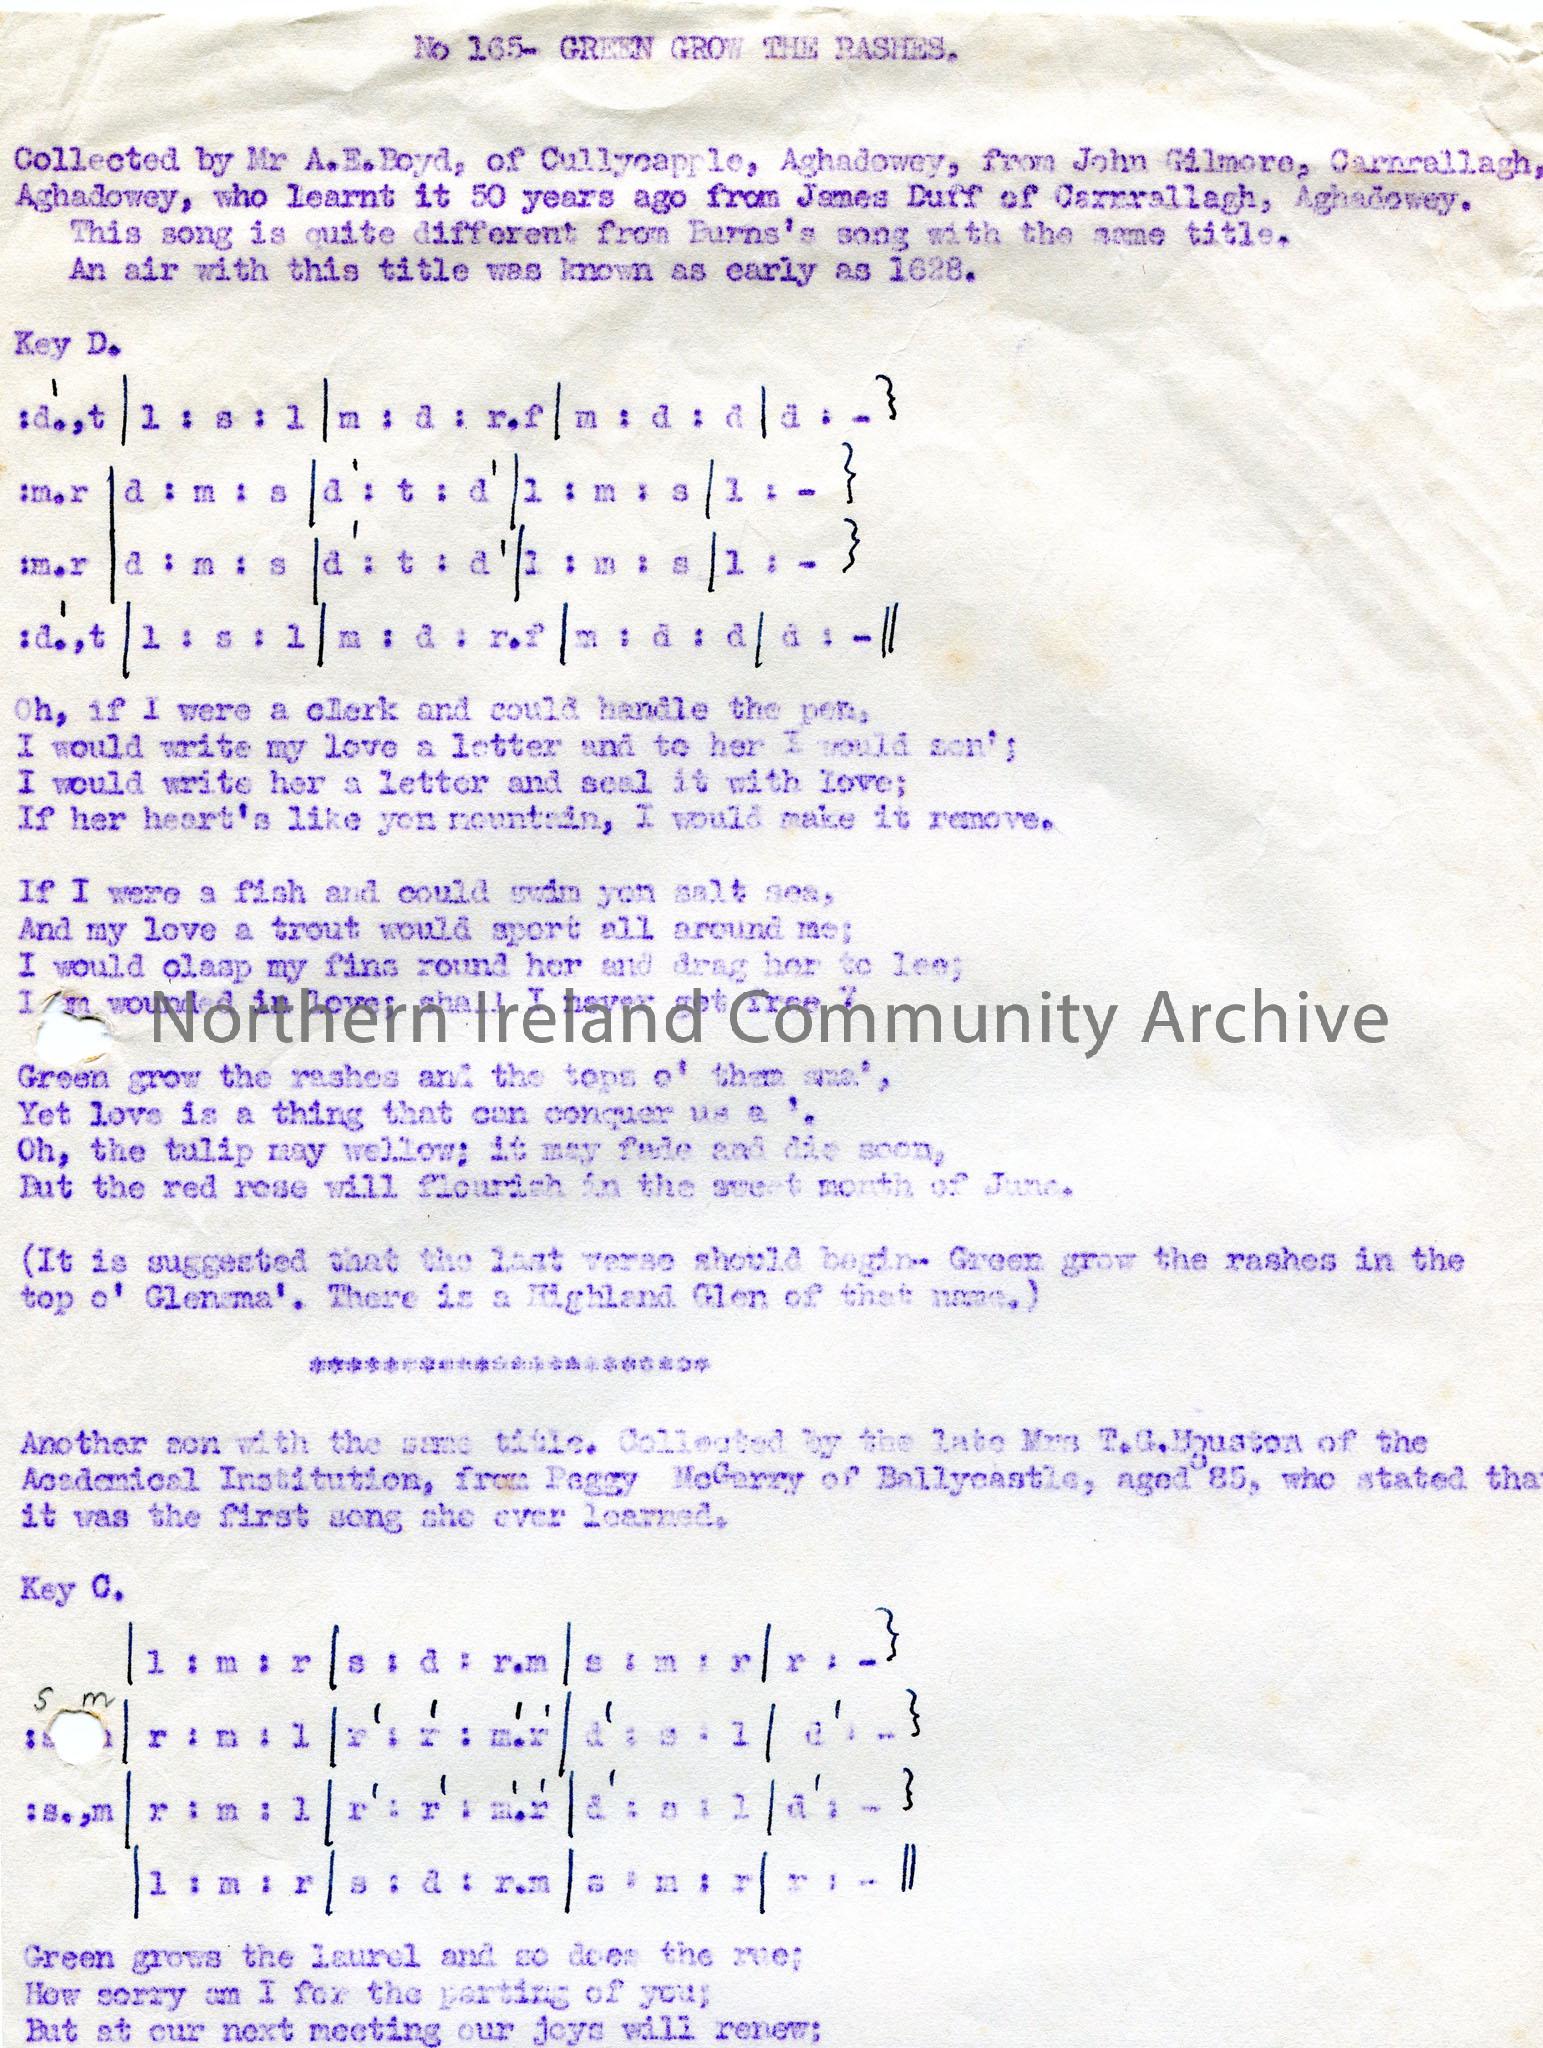 No 165- GREEN GROW THE RASHES.
Collected by Mr A.E.Boyd, of Cullycapple, Aghadowey, from John Gilmore, Carnrallagh,
Aghadowey, who learnt it 50 years ago from James Duff of Carnrallagh, Aghadowey.
This song is quite different from Burns's song with the same title.
An air with this title was known as early as 1628.
Key D.
:d'.,t | l : s : l | m : d : r.f | m : d : d | d : - }
:m.r | d : m : s | d' : t : d' | l : m : s | l : - }
:m.r | d : m : s | d' : t : d' | l : m : s | l : - }
:d'.,t | l : s : l | m : d : r.f | m : d : d | d : - ||
Oh, if I were a clerk and could handle the pen,
I would write my love a letter and to her I would sen';
I would write her a letter and seal it with love;
If her heart's like yon mountain, I would make it remove.
If I were a fish and could swim yon salt sea,
And my love a trout would sport all around me;
I would clasp my fins round her and drag her to lee;
I m wounded in love; shall I never get free ?
Northern Ireland Community Archive
Green grow the rashes and the tops o' them sma',
Yet love is a thing that can conquer us a '.
Oh, the tulip may wellow; it may fade and die soon,
But the red rose will flourish in the sweet month of June.
(It is suggested that the last verse should begin- Green grow the rashes in the
top o' Glensma'. There is a Highland Glen of that name.)
**********************
Another son with the same title. Collected by the late Mrs T.G.Houston of the
Academical Institution, from Peggy McGarry of Ballycastle, aged 85, who stated tha
it was the first song she ever learned.
Key C.
| l : m : r | s : d : r.m | s : m : r | r : - }
s m
: | r : m : l | r' : r' : m'.r' | d' : s : l | d' : - }
:s.,m | r : m : l | r' : r' : m'.r' | d' : s : l | d' : - }
| l : m : r | s : d : r.m | s : m : r | r : - ||
Green grows the laurel and so does the rue;
How sorry am I for the parting of you;
But at our next meeting our joys will renew;